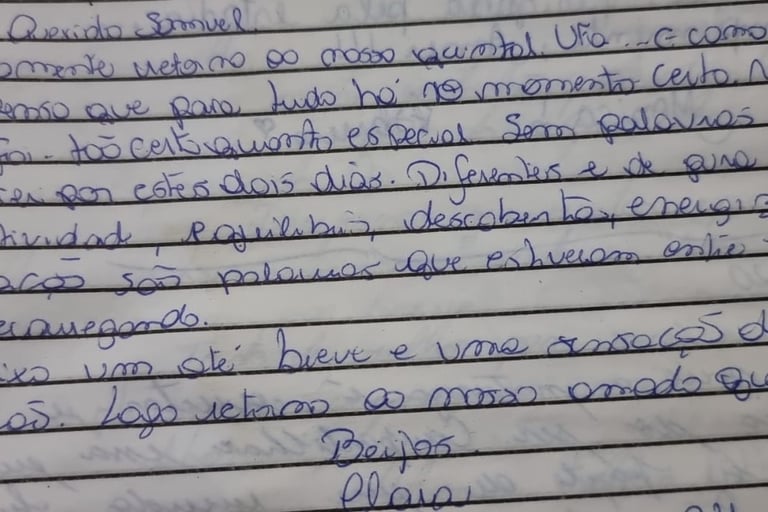 Querido Samuel.
omente retorno ao nosso quintal. Ufa... E como
enso que para tudo há no momento certo. N
tão certo quanto especial. Sem palavras
por estes dois dias. Diferentes e de pura
tividad, equilíbrio, descobertas, energia
ação são palavras que estiveram entre
arregando.
ixo um até breve e uma sensação d
ão. Logo retorno ao nosso amado qu
Beijos